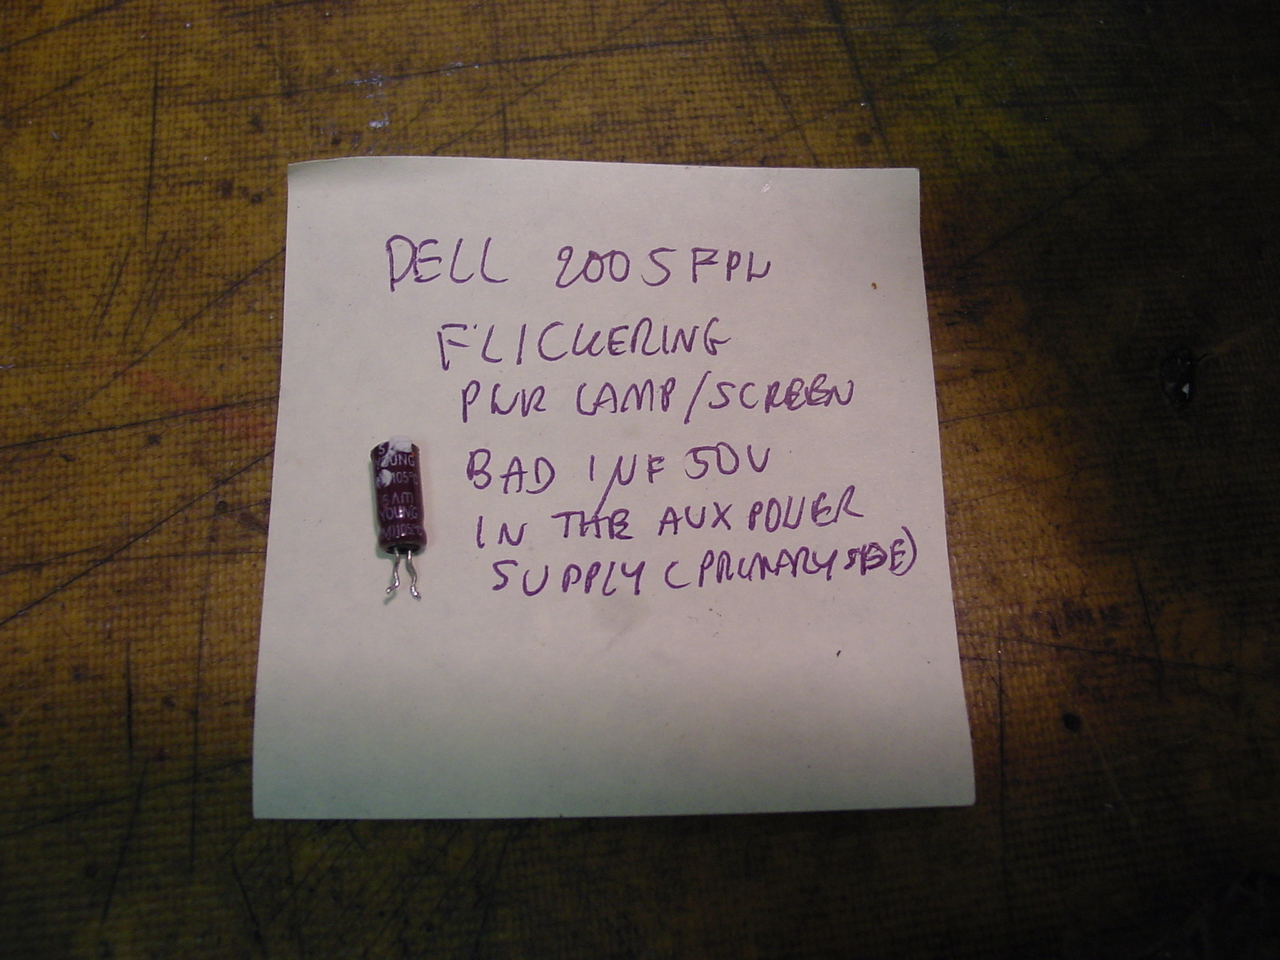 DELL 2005FPW
FLICKERING
PWR LAMP/SCREEN
BAD 1µF 50V
IN THE AUX POWER
SUPPLY (PRIMARY SIDE)
OUNG
105°C
SAM
YOUNG
105°C